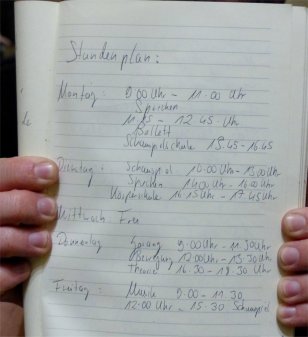 Stundenplan:
Montag: 9:00 Uhr - 11.00 Uhr
Sprechen
11.15 - 12.45 Uhr
Ballett
Schauspielschule 13.45 - 16.45
Dienstag: Schauspiel 10:00 Uhr - 13.00 Uhr
Sprechen 14.00 Uhr - 16.00 Uhr
Körperschule 16.15 Uhr - 17.45 Uhr
Mittwoch Frei
Donnerstag 9:00 Uhr - 11.30 Uhr
Bewegung 12.00 Uhr - 13.30 Uhr
Theorie 16.30 - 18.30 Uhr
Freitag: Musik 9.00 - 11.30
12:00 Uhr - 15.30 Schauspiel